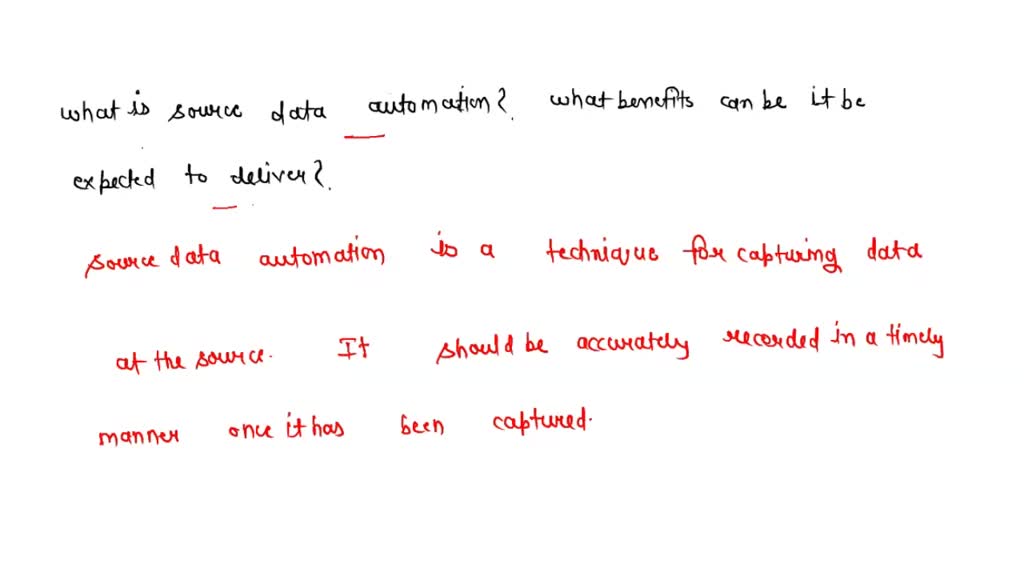 what is source data automation? what benefits can be it be
expected to deliver?
source data automation is a technique for capturing data
at the source. It should be accurately recorded in a timely
manner once it has been captured.